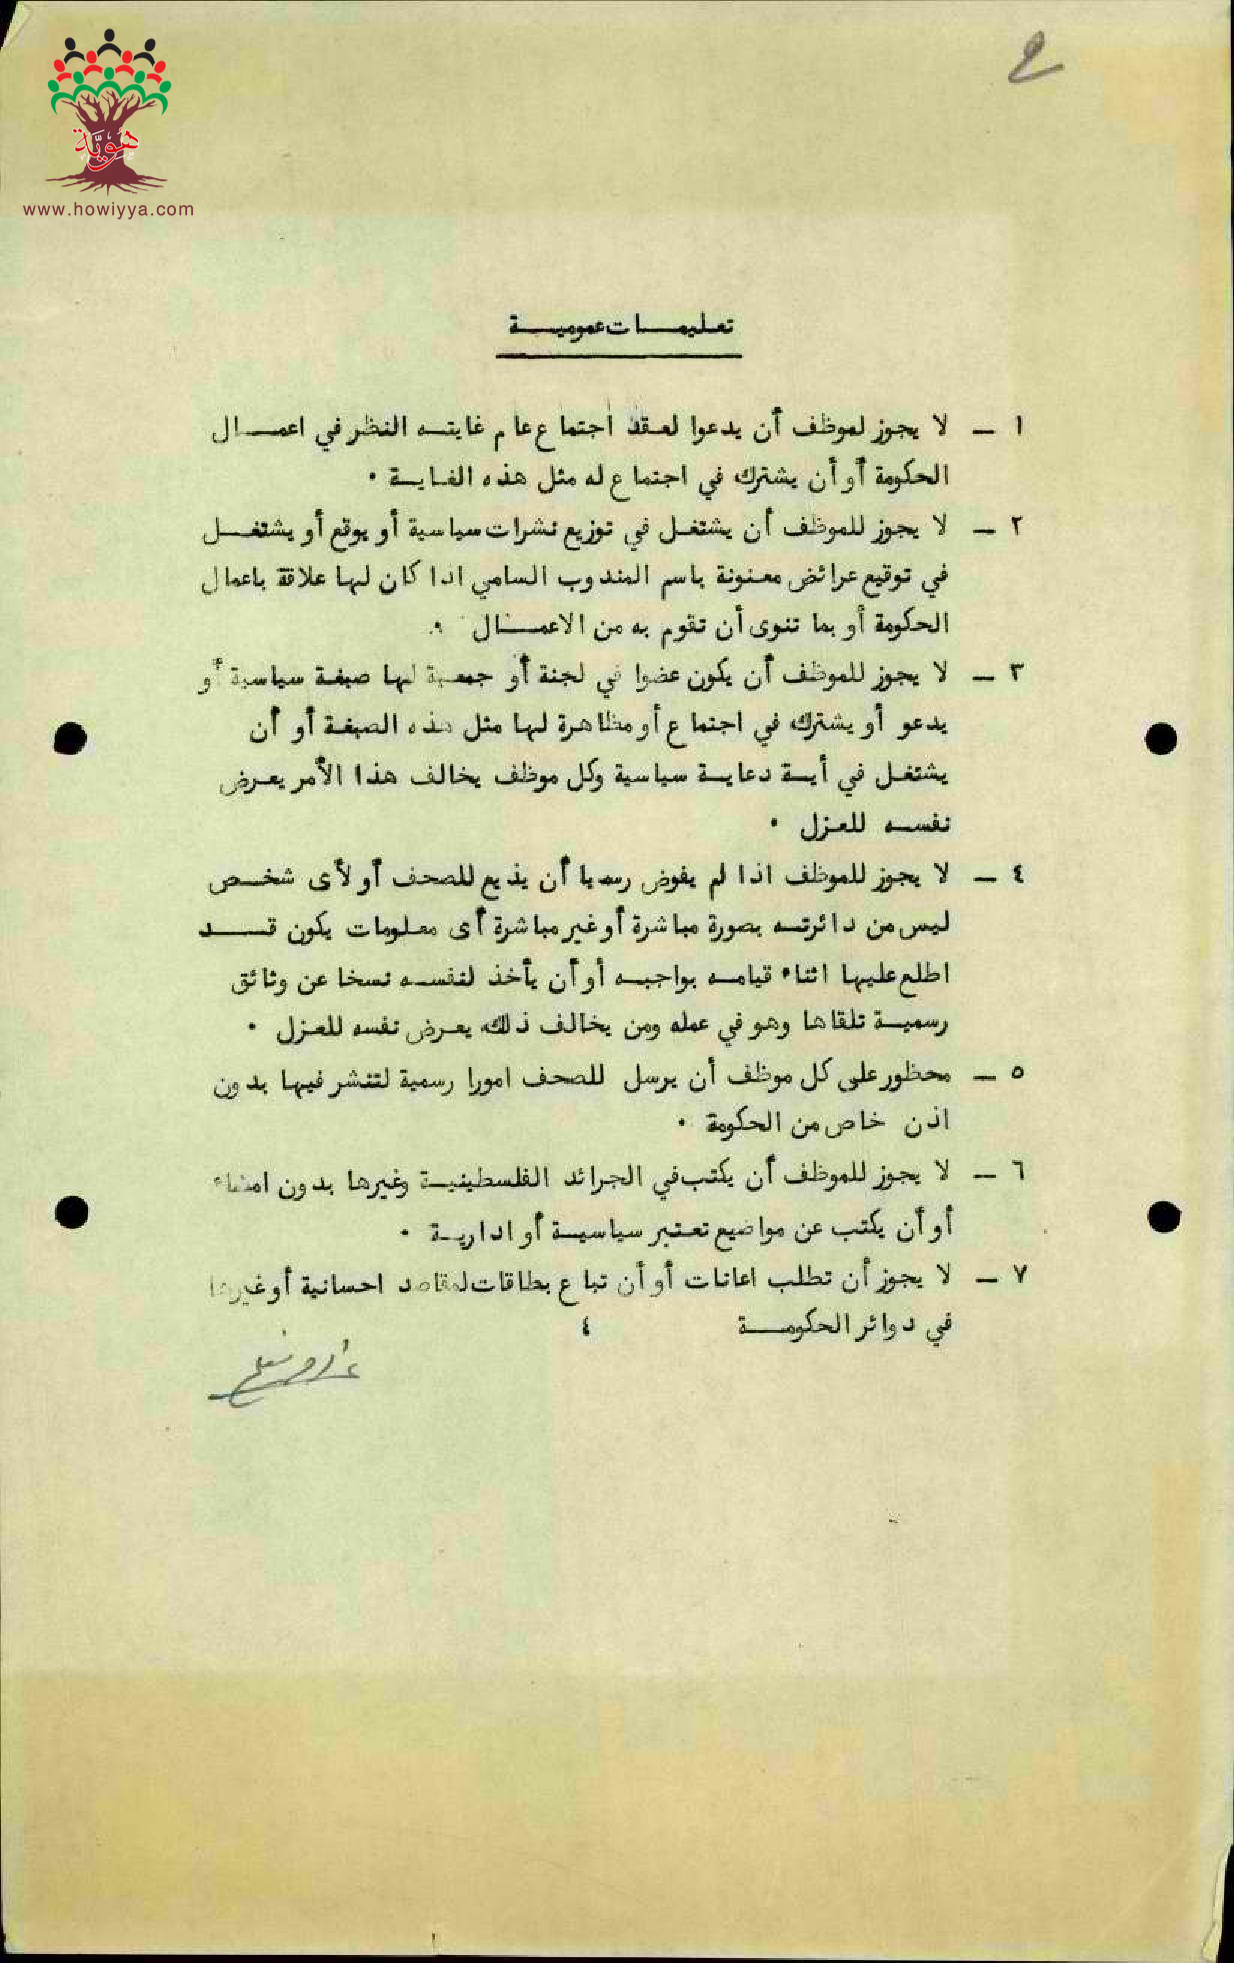 هوية
www.howiyya.com
تعليمات عمومية
١ – لا يجوز لموظف أن يدعوا لعقد اجتماع عام غايته النظر في اعمال
الحكومة أو أن يشترك في اجتماع له مثل هذه الغاية .
٢ – لا يجوز للموظف أن يشتغل في توزيع نشرات سياسية أو يوقع أو يشتغل
في توقيع عرائض معنونة باسم المندوب السامي اذا كان لها علاقة باعمال
الحكومة أو بما تنوى أن تقوم به من الاعمال .
٣ – لا يجوز للموظف أن يكون عضوا في لجنة أو جمعية لها صبغة سياسية أو
يدعو أو يشترك في اجتماع أو مظاهرة لها مثل هذه الصبغة أو أن
يشتغل في أية دعاية سياسية وكل موظف يخالف هذا الأمر يعرض
نفسه للعزل .
٤ – لا يجوز للموظف اذا لم يفوض رسميا أن يذيع للصحف أو لأى شخص
ليس من دائرته بصورة مباشرة أو غير مباشرة أى معلومات يكون قد
اطلع عليها اثناء قيامه بواجبه أو أن يأخذ لنفسه نسخا عن وثائق
رسمية تلقاها وهو في عمله ومن يخالف ذلك يعرض نفسه للعزل .
٥ – محظور على كل موظف أن يرسل للصحف امورا رسمية لتنشر فيها بدون
اذن خاص من الحكومة .
٦ – لا يجوز للموظف أن يكتب في الجرائد الفلسطينية وغيرها بدون امضاء
أو أن يكتب عن مواضيع تعتبر سياسية أو ادارية .
٧ – لا يجوز أن تطلب اعانات أو أن تباع بطاقات لمقاصد احسانية أو غيرها
في دوائر الحكومة ٤